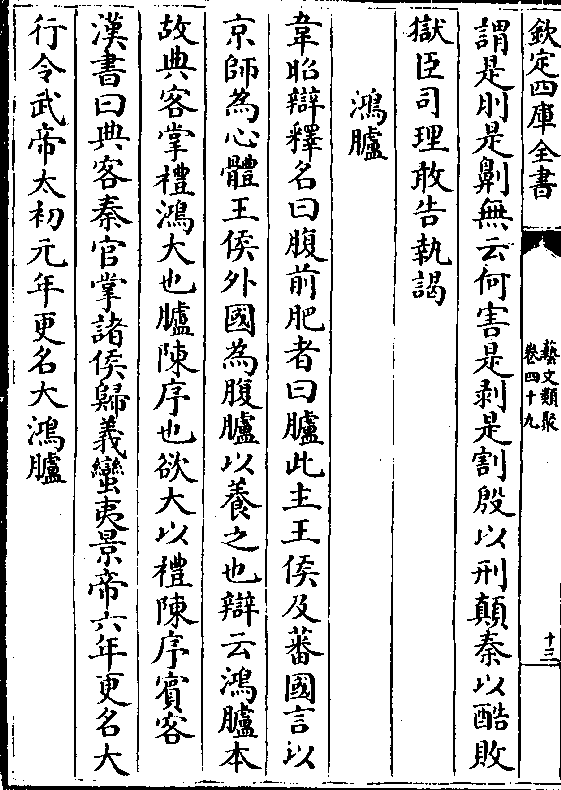 欽定四庫全書
藝文類聚
卷四十九
十三
謂是刖是劓無云何害是剥是割殷以刑顛秦以酷敗
獄臣司理敢告執謁
鴻臚
韋昭辯釋名曰腹前肥者曰臚此主王侯及蕃國言以
京師為心體王侯外國為腹臚以養之也辯云鴻臚本
故典客掌禮鴻大也臚陳序也欲大以禮陳序賓客
漢書曰典客秦官掌諸侯歸義蠻夷景帝六年更名大
行令武帝太初元年更名大鴻臚